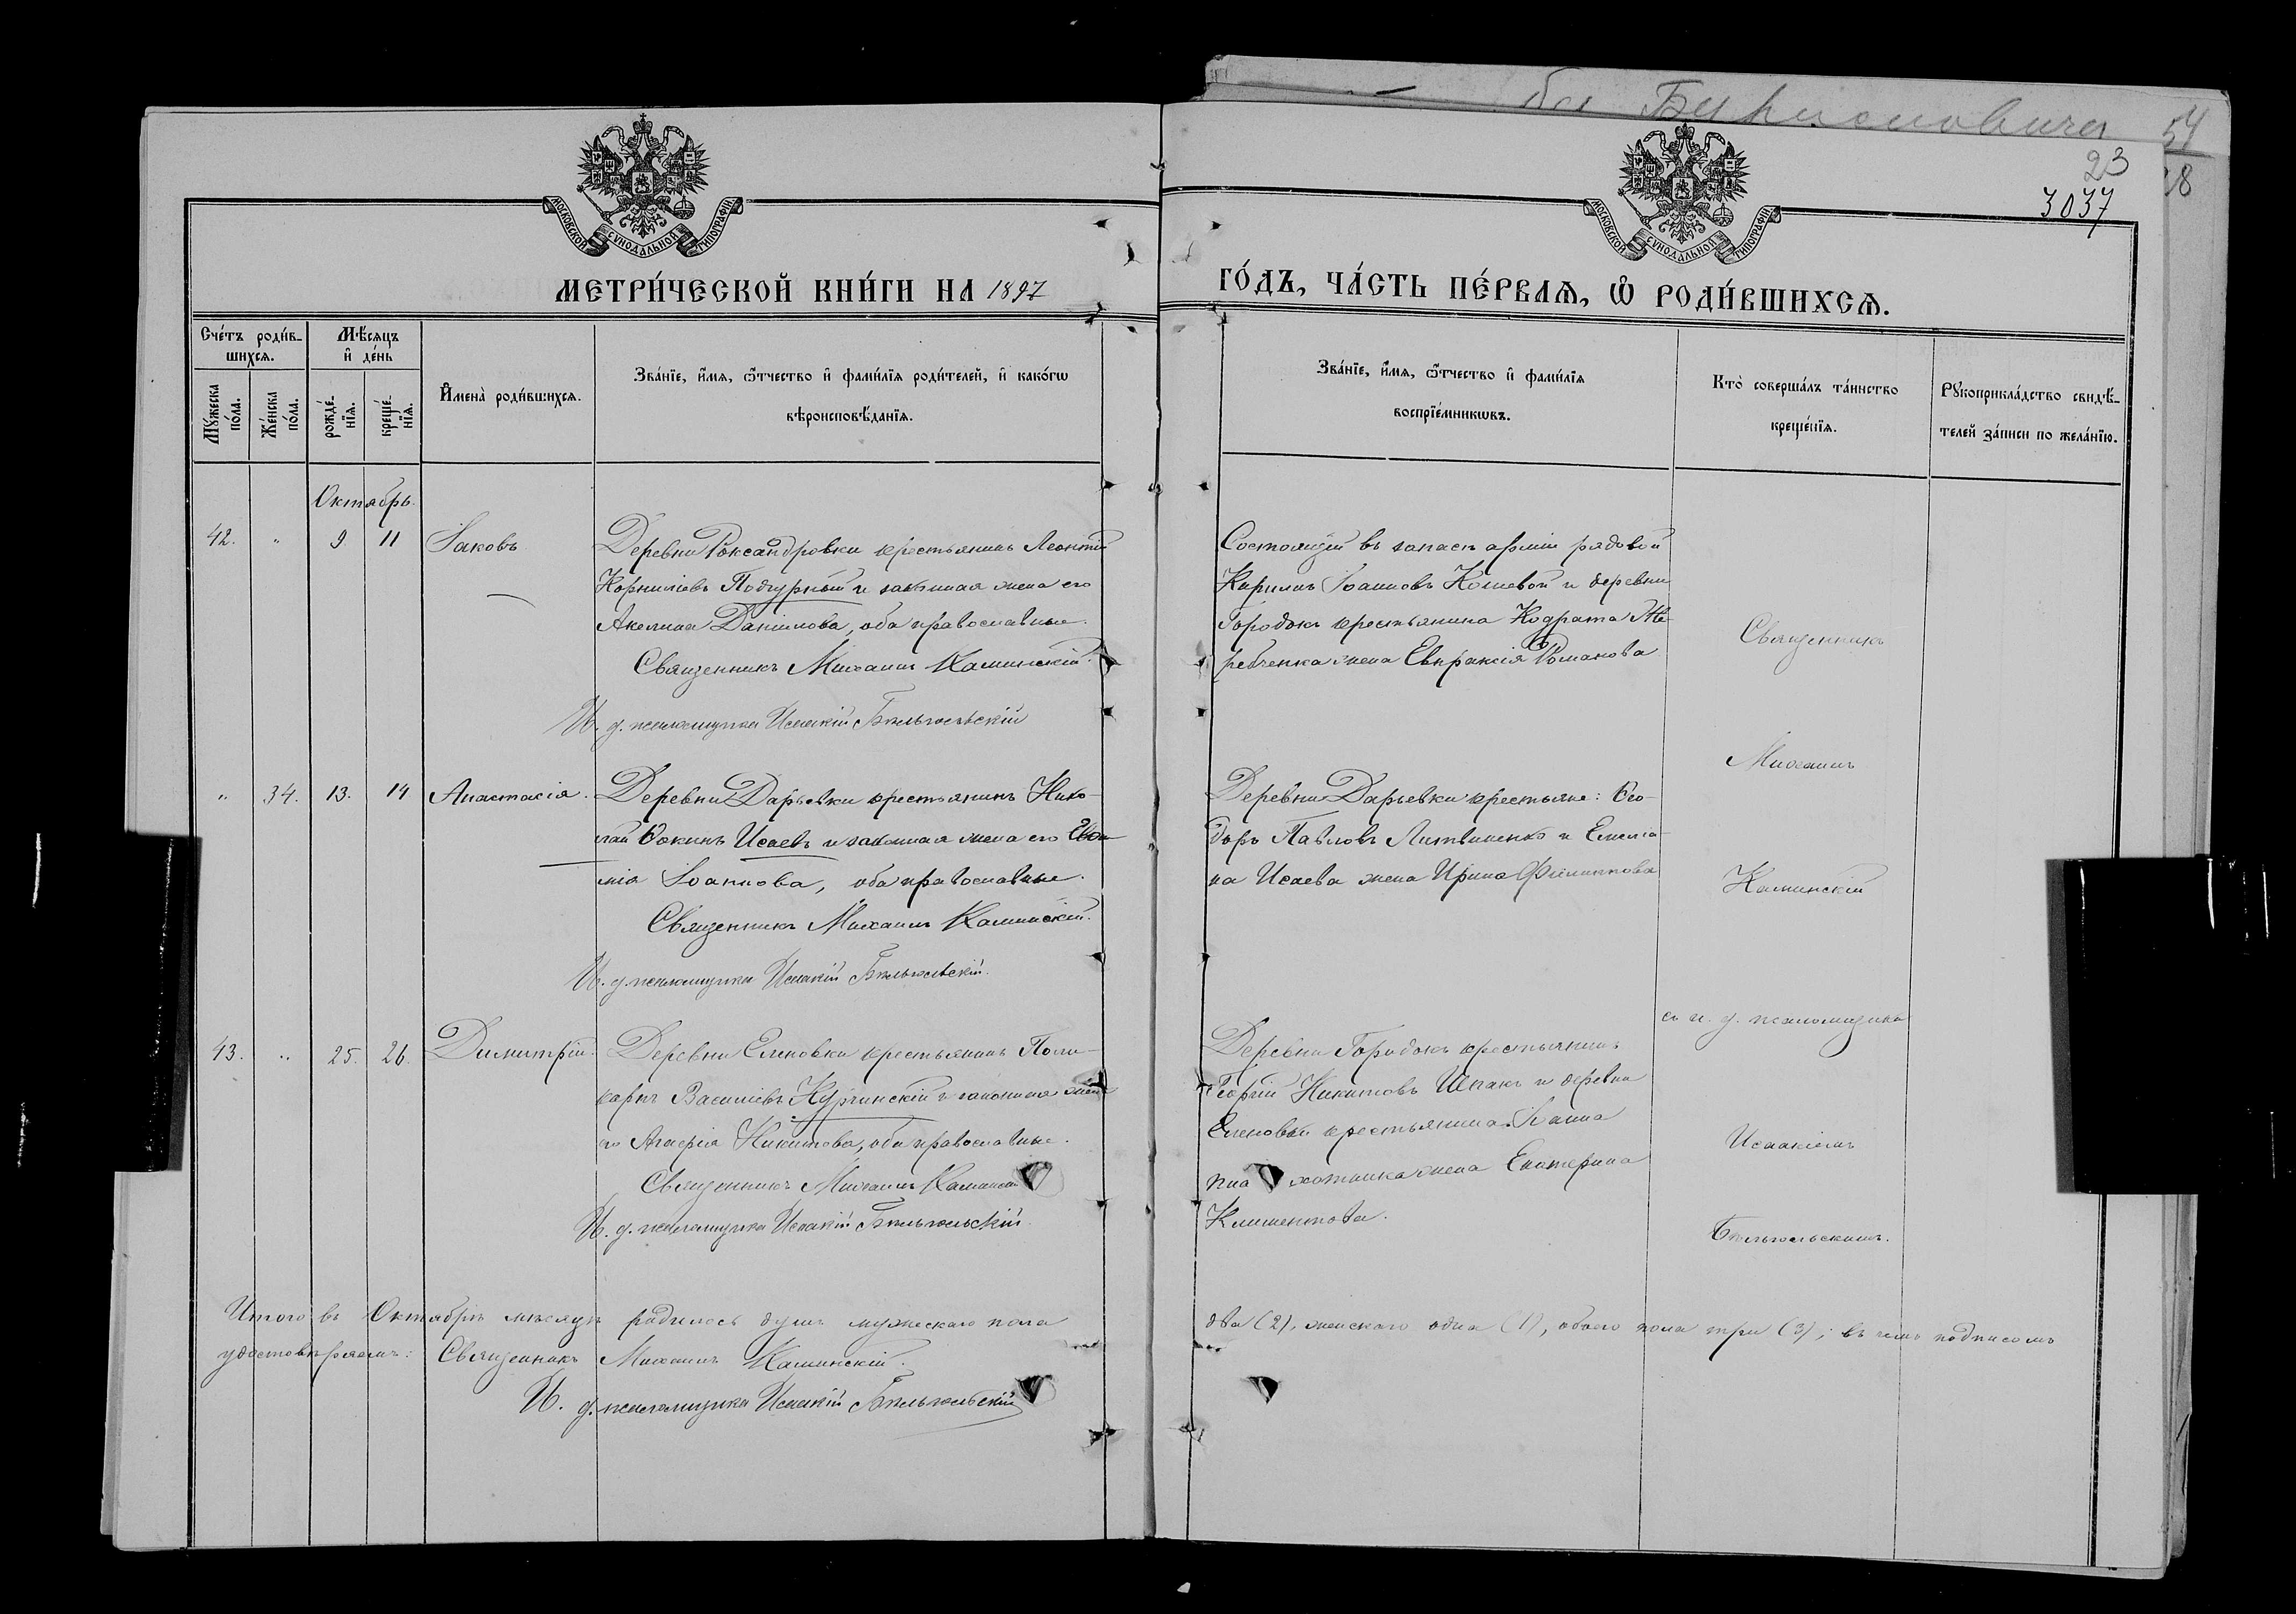 54
23
28
3037
МОСКОВСКОЙ СѴНОДАЛЬНОЙ ТИПОГРАФІИ
МОСКОВСКОЙ СѴНОДАЛЬНОЙ ТИПОГРАФІИ
МЕТРИ́ЧЕСКОЙ КНИ́ГИ НА 1897
ГО́ДЪ, ЧА́СТЬ ПЕ́РВАѦ, Ѽ РОДИ́ВШИХСѦ.
Сче́тъ роди́в-
шихсѧ.
Мꙋ́жеска
по́ла.
Же́нска
по́ла.
Мѣ́сѧцъ
и҆ де́нь
рожде́-
нїѧ.
креще́-
нїѧ.
И҆мена̀ роди́вшихсѧ.
Зва́нїе, и҆́мѧ, ѻ҆́тчество и҆ фами́лїѧ роди́телей, и҆ како́гѡ
вѣроисповѣ́данїѧ.
Зва́нїе, и҆́мѧ, ѻ҆́тчество и҆ фами́лїѧ
воспрїе́мникѡвъ.
Кто̀ соверша́лъ та́инство
креще́нїѧ.
Рꙋкоприкла́дство свидѣ́-
телей за́писи по жела́нїю.
Октябрь.
42. " 9 11 Іаковъ
Деревни Роксандровки крестьянинъ Леонтій
Корниліевъ Подгурный и законная жена его
Акелина Данилова, оба православные.
Священникъ Михаилъ Каминскій.
И. д. псаломщика Исаакій Бѣльжельскій
Состоящій въ запасѣ арміи рядовой
Кириллъ Іоанновъ Кошевой и деревни
Городокъ крестьянина Кодрата Же-
ребченка жена Евпраксія Романова
" 34. 13. 14 Анастасія.
Деревни Дарьевки крестьянинъ Нико-
лай Ѳокинъ Исаевъ и законная жена его Евѳи-
мія Іоаннова, оба православные.
Священникъ Михаилъ Каминскій.
И. д. псаломщика Исаакій Бѣльжельскій.
Деревни Дарьевки крестьяне: Ѳео-
доръ Павловъ Литвиненко и Емелiа-
на Исаева жена Ирина Филиппова
43. " 25. 26. Димитрій.
Деревни Еленовки крестьянинъ Поли-
карпъ Василіевъ Курчинскій и законная жена
его Агафія Никитова, оба православные.
Священникъ Михаилъ Каминскій
И. д. псаломщика Исаакій Бѣльжельскій.
Деревни Городокъ крестьянинъ
Георгій Никитовъ Шпакъ и деревни
Еленовки крестьянина
жена Екатерина
Климентова.
Священникъ
Михаилъ
Каминскій
съ и. д. псаломщика
Исаакіемъ
Бѣльжельскимъ.
Итого въ Октябрѣ мѣсяцѣ родилось душъ мужескаго пола
два (2), женскаго одна (1), обоего пола три (3); въ чемъ подписомъ
удостовѣряемъ: Священникъ Михаилъ Каминскій.
И. д. псаломщика Исаакій Бѣльжельскій